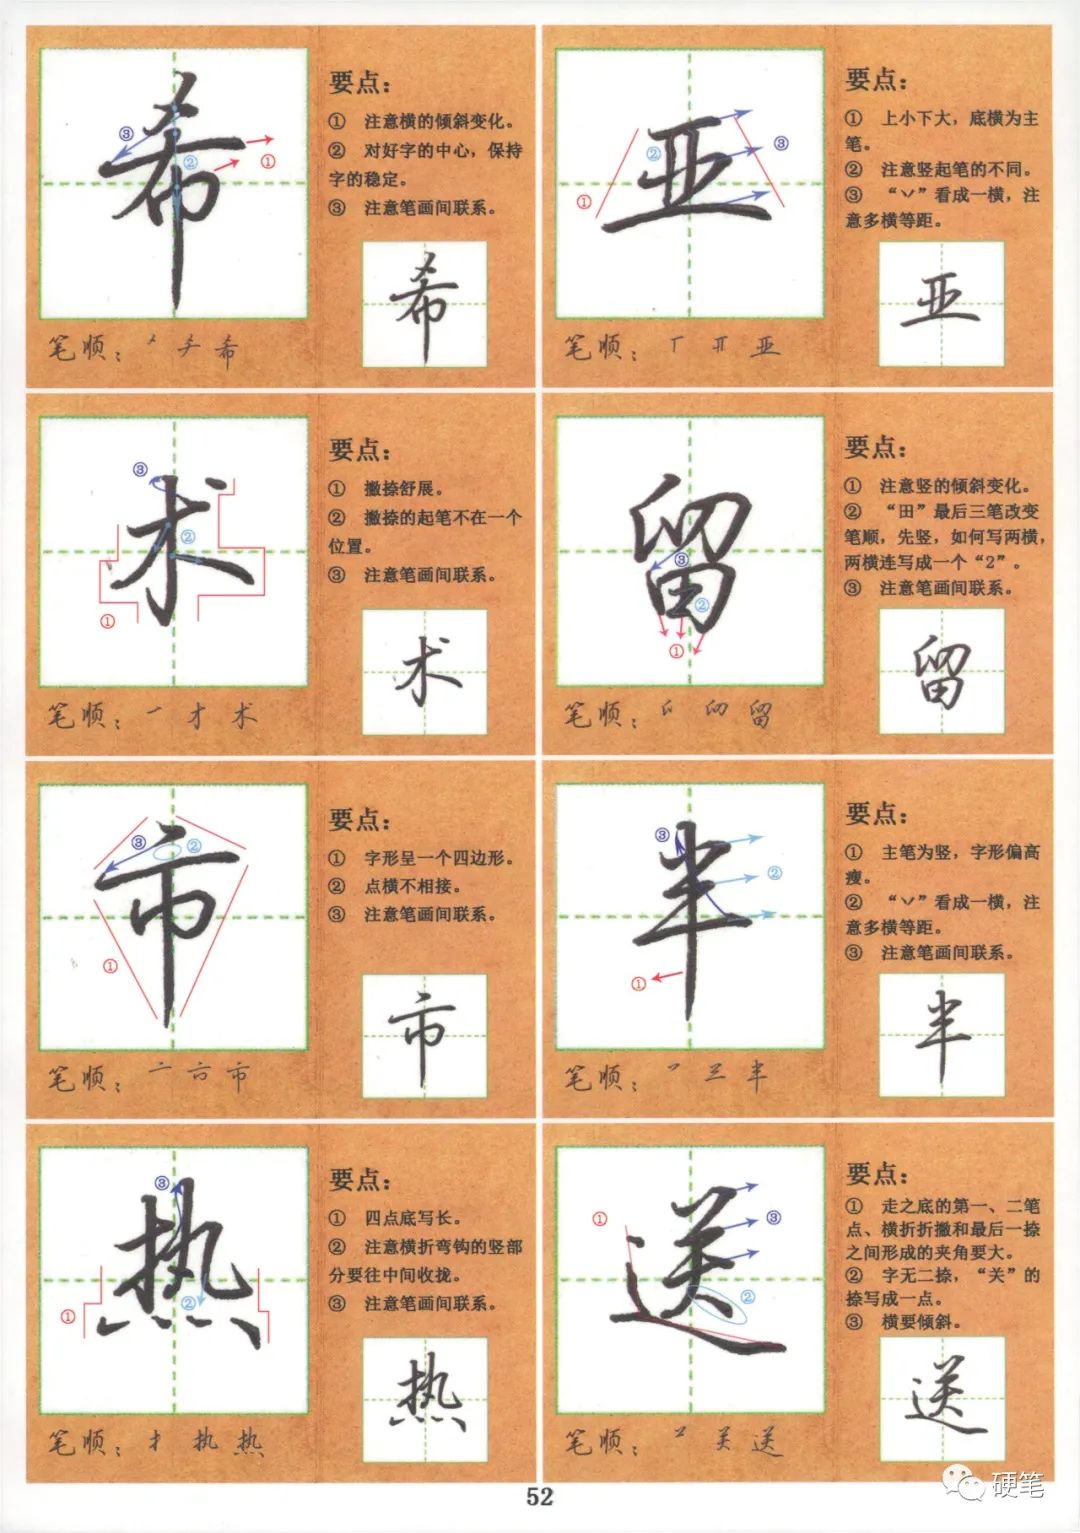 希
③
②
①
要点：
① 注意横的倾斜变化。
② 对好字的中心，保持
字的稳定。
③ 注意笔画间联系。
希
笔顺：
希
亚
②
③
①
要点：
① 上小下大，底横为主
笔。
② 注意竖起笔的不同。
③ “丷”看成一横，注
意多横等距。
亚
笔顺：
亚
术
③
②
①
要点：
① 撇捺舒展。
② 撇捺的起笔不在一个
位置。
③ 注意笔画间联系。
术
笔顺：一 才 术
留
③
②
①
要点：
① 注意竖的倾斜变化。
② “田”最后三笔改变
笔顺，先竖，如何写两横，
两横连写成一个“2”。
③ 注意笔画间联系。
留
笔顺：
留
市
③
②
①
要点：
① 字形呈一个四边形。
② 点横不相接。
③ 注意笔画间联系。
市
笔顺：亠 市
半
③
②
①
要点：
① 主笔为竖，字形偏高
瘦。
② “丷”看成一横，注
意多横等距。
③ 注意笔画间联系。
半
笔顺：
半
热
③
②
①
要点：
① 四点底写长。
② 注意横折弯钩的竖部
分要往中间收拢。
③ 注意笔画间联系。
热
笔顺：扌 执 热
送
①
③
②
要点：
① 走之底的第一、二笔
点、横折折撇和最后一捺
之间形成的夹角要大。
② 字无二捺，“关”的
捺写成一点。
③ 横要倾斜。
送
笔顺：丷 关 送
52
硬笔